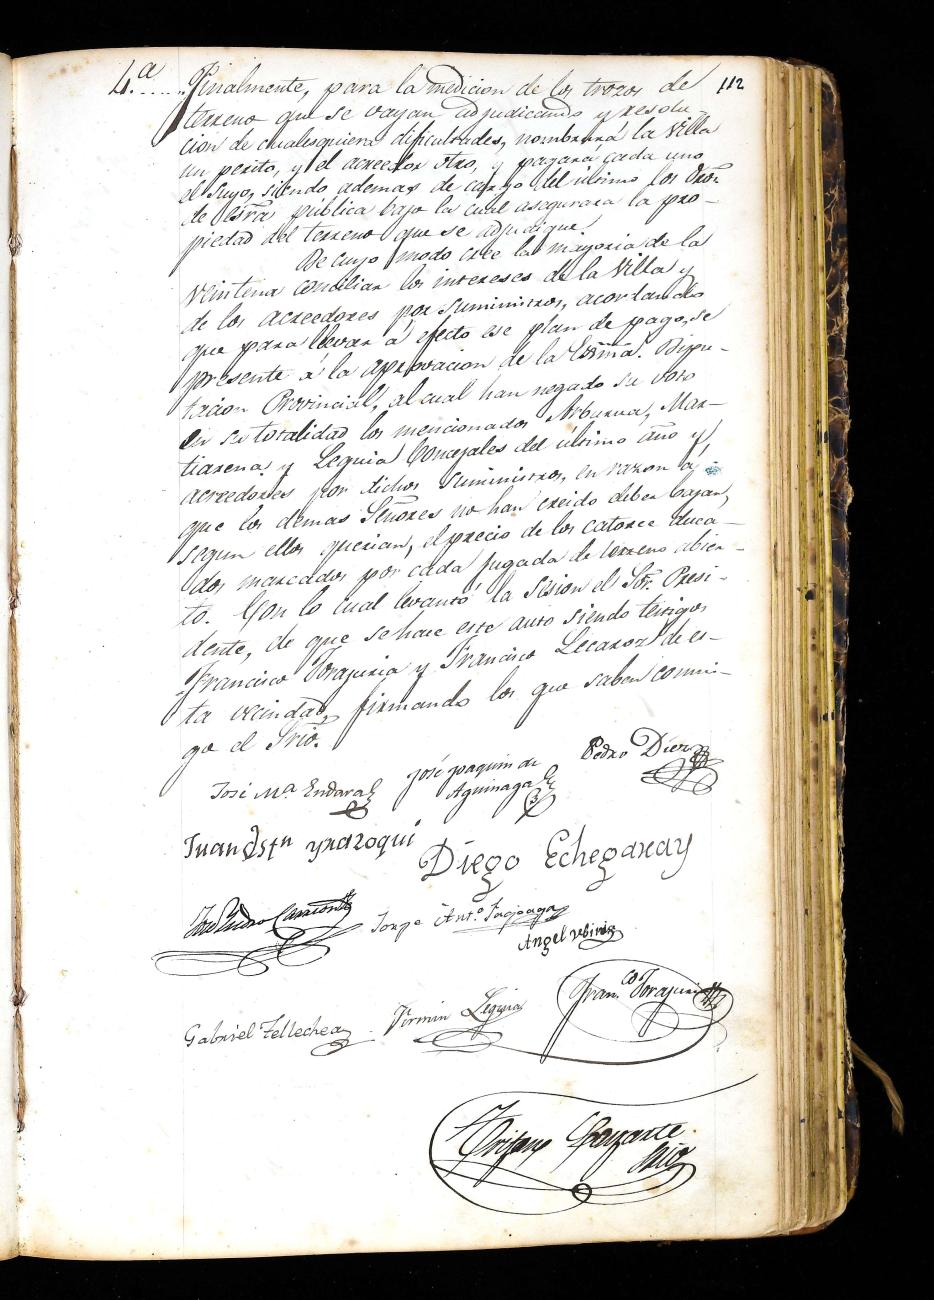 112
4.ª ..... Finalmente, para la medicion de los trozos de
terreno que se vayan adjudicando y resolu-
cion de cualesquiera dificultades, nombrará la Villa
un perito, y el acreedor otro, y pagará cada uno
al suyo, siendo ademas de cargo del ultimo los
de Esrã pública bajo la cual asegurara la pro-
piedad del terreno que se adjudique.
De cuyo modo cree la mayoria de la
veintena conciliar los intereses de la Villa y
de los acreedores por suministros, acordando
que para llevar á efecto ese plan de pago, se
presente á la aprovacion de la Exmã. Dipu-
tacion Provincial, al cual han negado su voto
en su totalidad los mencionados Arburua, Mar-
tiarena y Leguia Concejales del ultimo año y
acreedores por dichos suministros, en razon á
que los demas Señores no han creido deber bajar,
segun ellos querian, el precio de los catorce duca-
dos marcados por cada jugada de terreno abier-
to. Con lo cual levantó la Sesion el Sor. Presi-
dente, de que se hace este auto siendo testigos
Francisco Yorajuria y Francisco Lecaroz de es-
ta vecindad, firmando los que saben conmi-
go el Srio.
José Mª Endara
José Joaquin de
Aguinaga
Pedro Diez
Juan Bstn yrazoqui
Diego Echegaray
José Pedro
Jorge Ant.º
Angel Ubiria
Gabriel Tellechea
Fermin Leguia
Fran.co Yorajuria
Apezarte
Srio